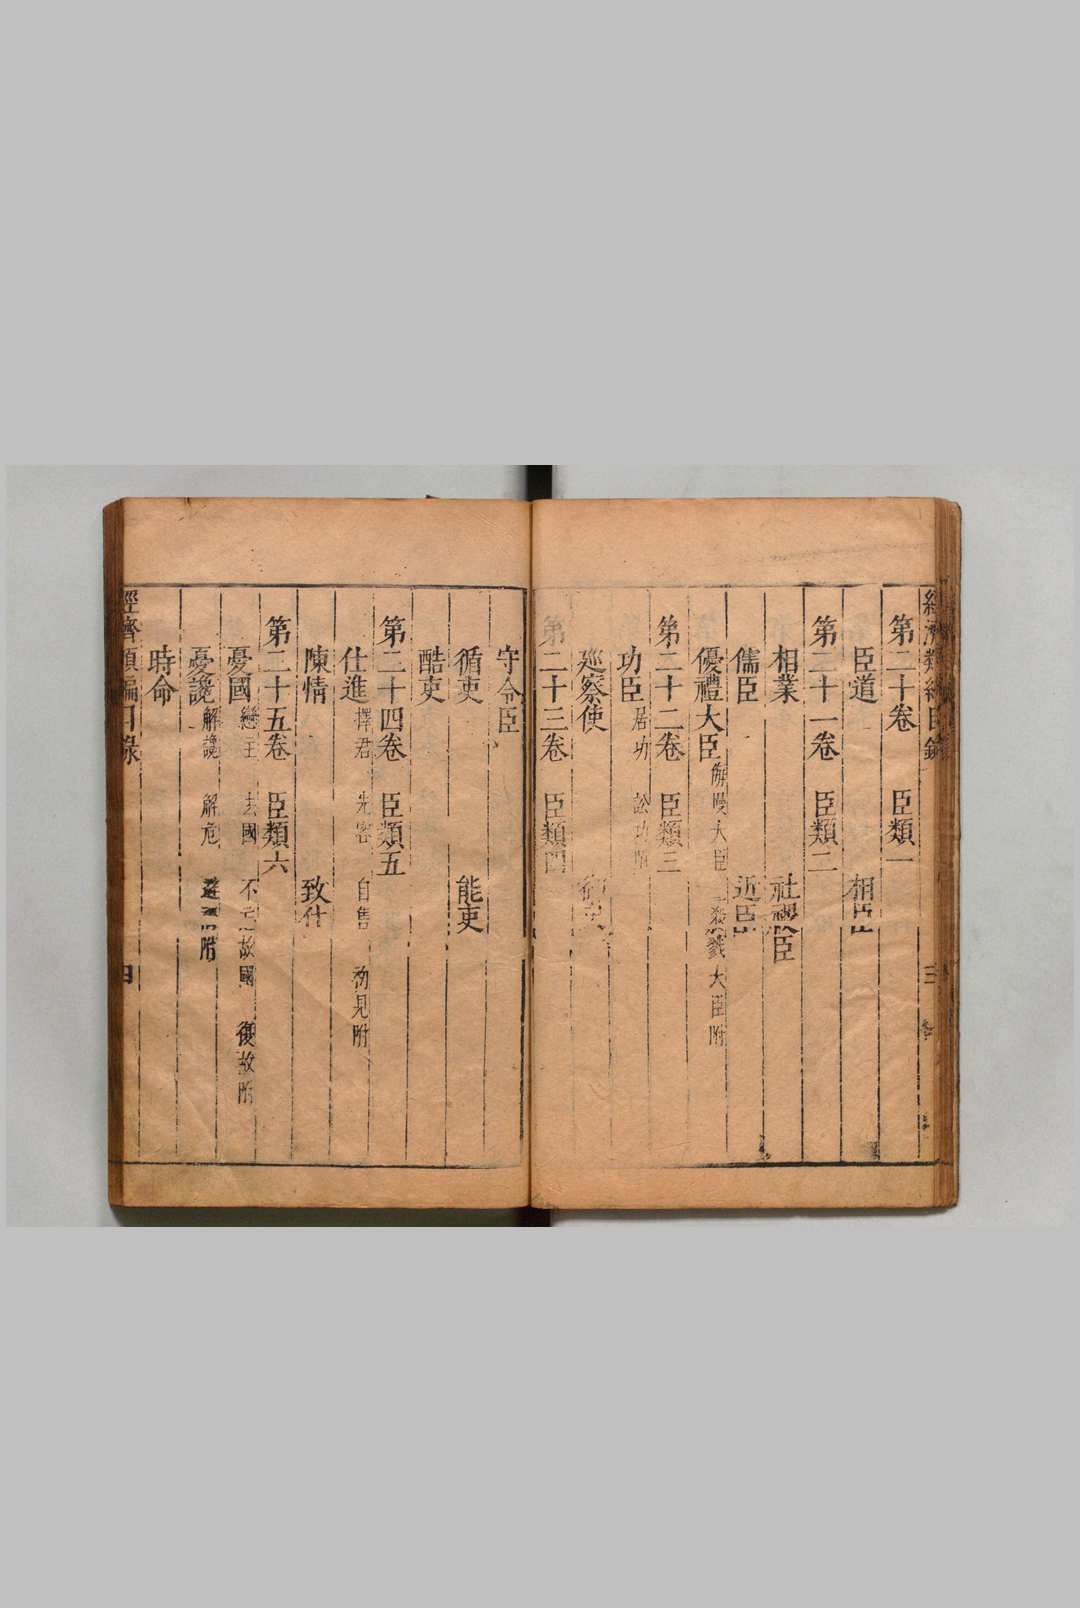 第二十卷　臣類一
臣道　相臣
第二十一卷　臣類二
相業　社稷臣
儒臣　近臣
優禮大臣　慢大臣　殺戮大臣附
第二十二卷　臣類三
功臣　居功　訟功附
巡察使
第二十三卷　臣類四
守令臣
循吏　能吏
酷吏
第二十四卷　臣類五
仕進　擇君　先容　自售　初見附
陳情　致仕
第二十五卷　臣類六
憂國　戀主　去國　不忘故國　復故附
憂讒　解讒　解危　附
時命
經濟類編目錄　四